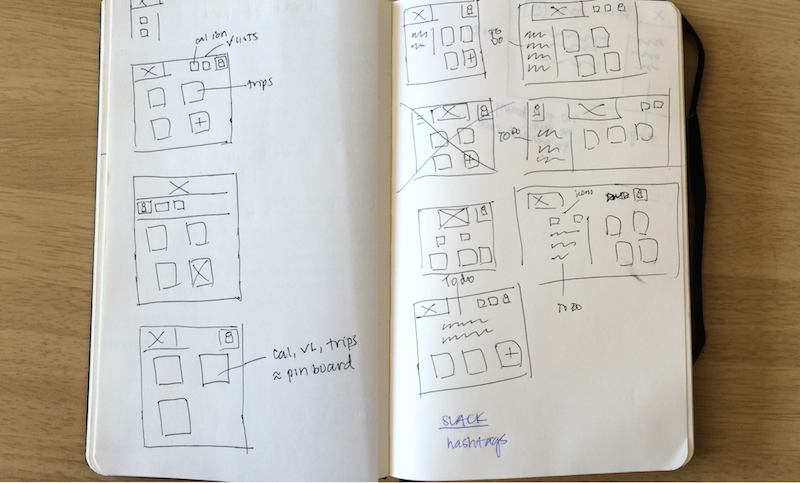 cal icon
V LISTS
trips
cal, VL, trips
≈ pin board
TO
DO
TO DO
icons
TO DO
To do
SLACK
hashtags